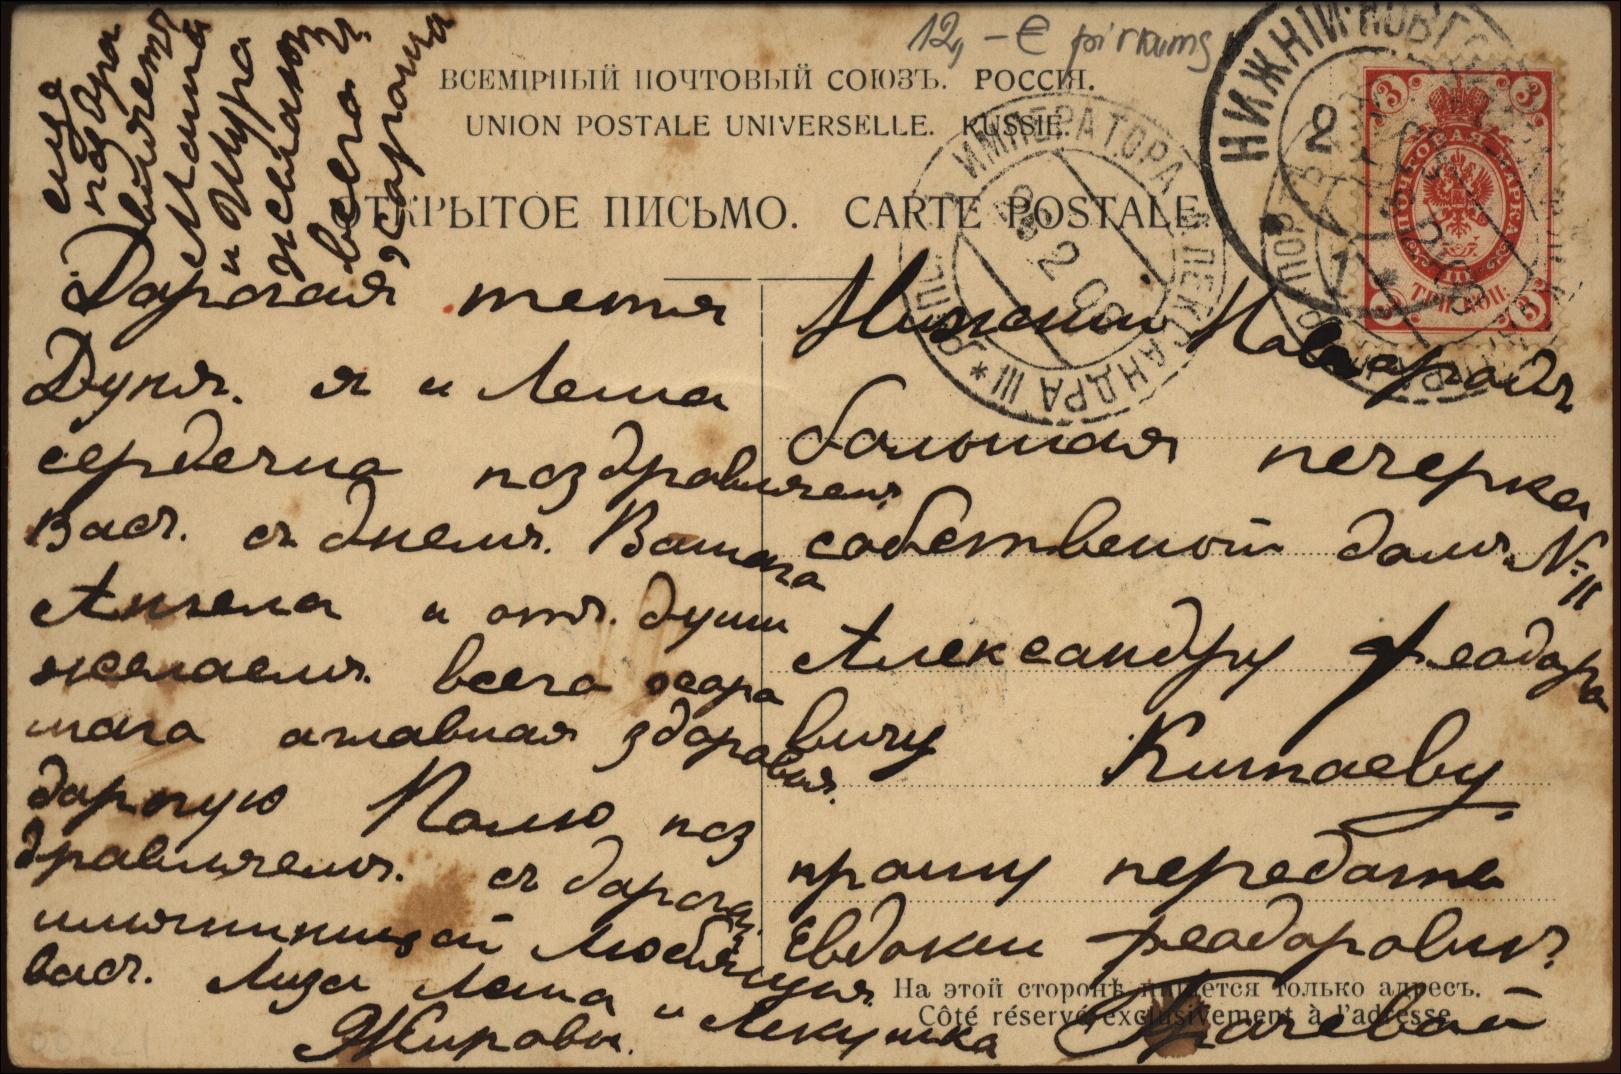 12,-€ pirkums
ВСЕМІРНЫЙ ПОЧТОВЫЙ СОЮЗЪ. РОССІЯ.
UNION POSTALE UNIVERSELLE. RUSSIE.
ОТКРЫТОЕ ПИСЬМО. CARTE POSTALE.
НИЖНІЙ НОВГ
ПОРТЪ ИМПЕРАТОРА АЛЕКСАНДРА III
2 09
ПОЧТОВАЯ МАРКА
ТРИ КОП.
3 3 3 3
еще
поздра
вляетъ
Маша
и Шура
желаютъ
всего
харошаго
Дарогая тетя
Дуня. я и Леша
сердечна поздравляемъ
Васъ. съ днемъ. Вашега
Ангела и отъ. души
желаемъ. всего хоро
шага аглавная здаровья.
дарогую Полю поз
дравляемъ. съ дарогай
имянинницай Любящия
васъ. Лиза Леша и Лекушка
Жировы.
Нижний Новгародъ
большая печерка
собственой домъ № 11
Александру Феодоро
вичу Китаеву
прошу передать
Евдокии Феодоровнъ
Грачевой
На этой сторонѣ пишется только адресъ.
Côté réservé exclusivement à l'adresse